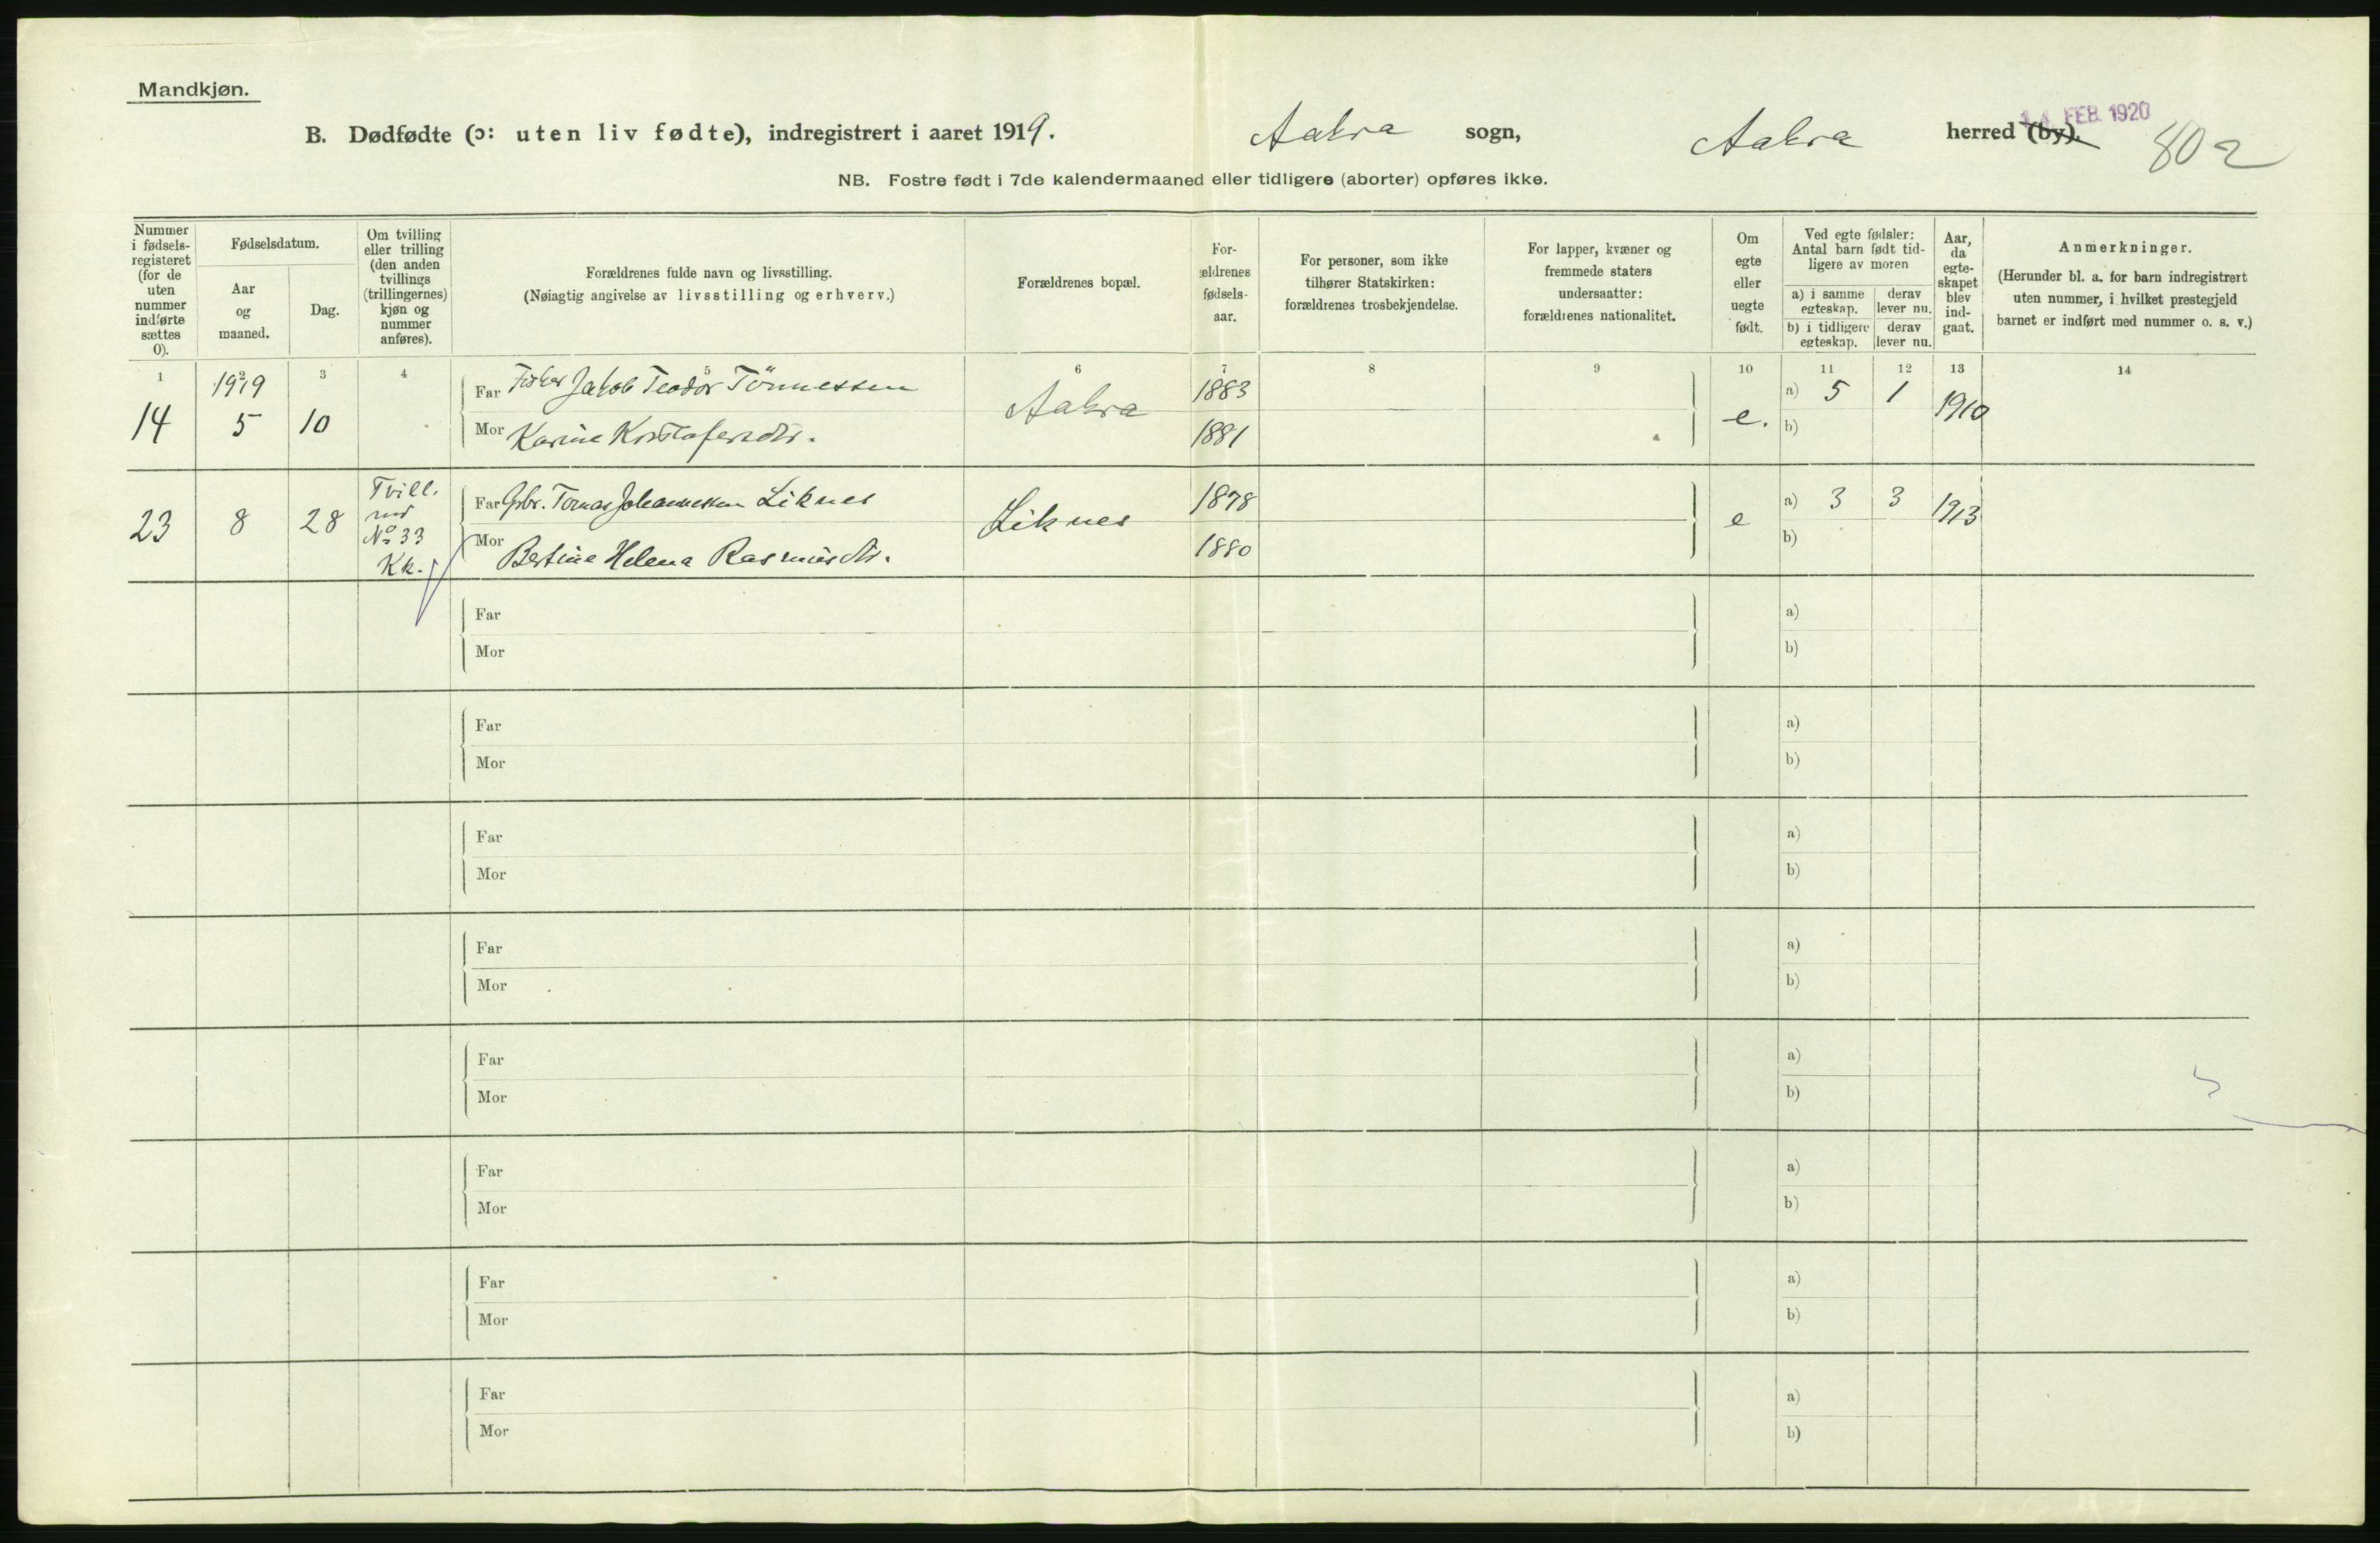 Mandkjøn.
B. Dødfødte (ɔ: uten liv fødte), indregistrert i aaret 1919. Aakra sogn, Aakra herred (by).
14 FEB. 1920
802
NB. Fostre født i 7de kalendermaaned eller tidligere (aborter) opføres ikke.
Nummer i fødsels-registeret (for de uten nummer indførte sættes 0).
Fødselsdatum.
Aar og maaned.
Dag.
Om tvilling eller trilling (den anden tvillings (trillingernes) kjøn og nummer anføres).
Forældrenes fulde navn og livsstilling.
(Nøiagtig angivelse av livsstilling og erhverv.)
Forældrenes bopæl.
For-ældrenes fødsels-aar.
For personer, som ikke tilhører Statskirken: forældrenes trosbekjendelse.
For lapper, kvæner og fremmede staters undersaatter: forældrenes nationalitet.
Om egte eller uegte født.
Ved egte fødsler: Antal barn født tid-ligere av moren
a) i samme egteskap.
derav lever nu.
b) i tidligere egteskap.
derav lever nu.
Aar, da egte-skapet blev ind-gaat.
Anmerkninger.
(Herunder bl. a. for barn indregistrert uten nummer, i hvilket prestegjeld barnet er indført med nummer o. s. v.)
1 2 3 4 5 6 7 8 9 10 11 12 13 14
14 1919 5 10 Far Fisker Jakob Teodor Tönnessen Aakra 1883 e. a) 5 1 1910
Mor Karine Kristofersdtr. 1881 b)
23 8 28 Tvill. med No 33 Kk. Far Gbr. Tomas Johannessen Liknes Liknes 1878 e a) 3 3 1913
Mor Bertine Helena Rasmusdtr. 1880 b)
Far a)
Mor b)
Far a)
Mor b)
Far a)
Mor b)
Far a)
Mor b)
Far a)
Mor b)
Far a)
Mor b)
Far a)
Mor b)
Far a)
Mor b)